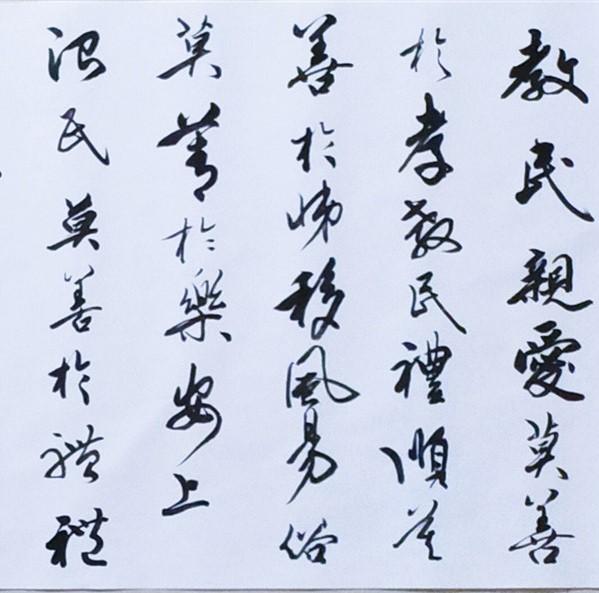 教民親愛莫善
於孝教民禮順莫
善於悌移風易俗
莫善於樂安上
治民莫善於禮禮